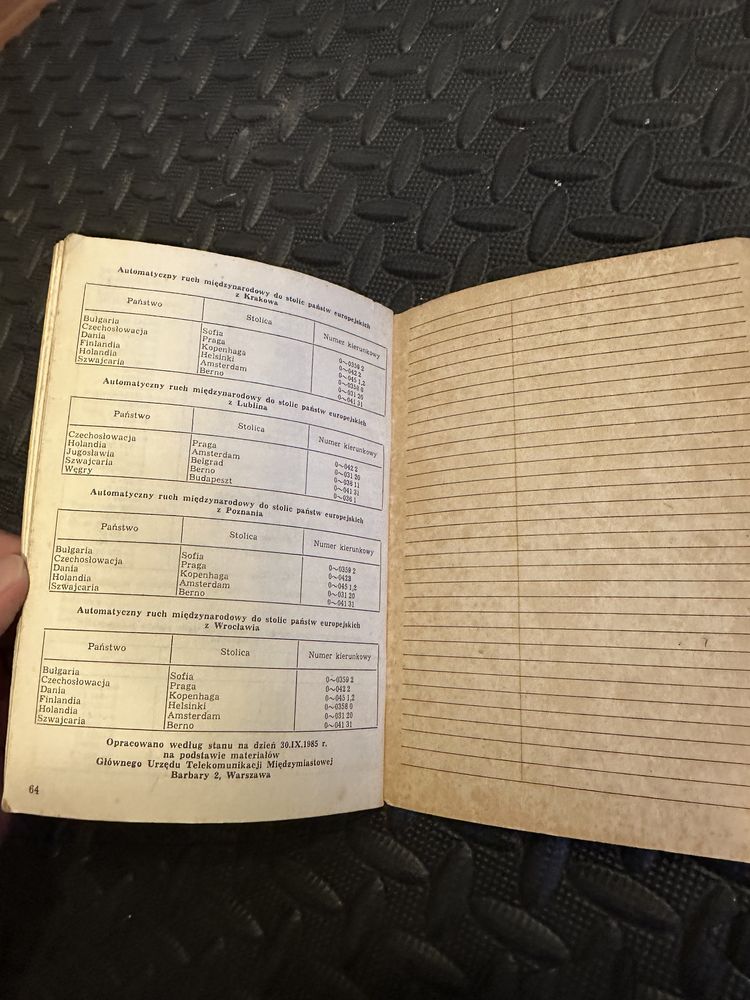 Automatyczny ruch międzynarodowy do stolic państw europejskich
z Krakowa
Państwo Stolica Numer kierunkowy
Bułgaria Sofia 0~0359 2
Czechosłowacja Praga 0~042 2
Dania Kopenhaga 0~045 1,2
Finlandia Helsinki 0~0358 0
Holandia Amsterdam 0~031 20
Szwajcaria Berno 0~041 31
Automatyczny ruch międzynarodowy do stolic państw europejskich
z Lublina
Państwo Stolica Numer kierunkowy
Czechosłowacja Praga 0~042 2
Holandia Amsterdam 0~031 20
Jugosławia Belgrad 0~038 11
Szwajcaria Berno 0~041 31
Węgry Budapeszt 0~036 1
Automatyczny ruch międzynarodowy do stolic państw europejskich
z Poznania
Państwo Stolica Numer kierunkowy
Bułgaria Sofia 0~0359 2
Czechosłowacja Praga 0~0422
Dania Kopenhaga 0~045 1,2
Holandia Amsterdam 0~031 20
Szwajcaria Berno 0~041 31
Automatyczny ruch międzynarodowy do stolic państw europejskich
z Wrocławia
Państwo Stolica Numer kierunkowy
Bułgaria Sofia 0~0359 2
Czechosłowacja Praga 0~042 2
Dania Kopenhaga 0~045 1,2
Finlandia Helsinki 0~0358 0
Holandia Amsterdam 0~031 20
Szwajcaria Berno 0~041 31
Opracowano według stanu na dzień 30.IX.1985 r.
na podstawie materiałów
Głównego Urzędu Telekomunikacji Międzymiastowej
Barbary 2, Warszawa
64